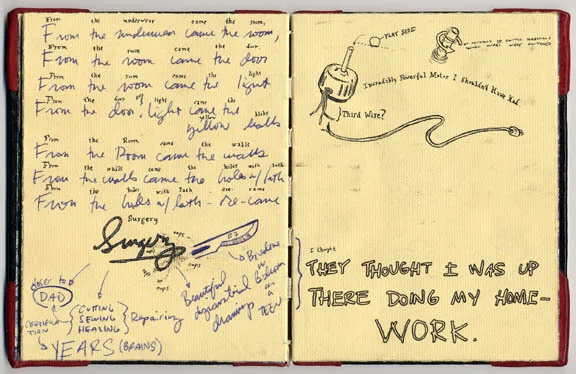 From the underwear came the room,
From the underwear came the room,
From the room came the door
From the room came the door
From the room came the light
From the room came the light
From the door, light came the
From the door, light came the
yellow
yellow walls
From the Room came the walls
From the Room came the walls
From the walls came the holes with lath
From the walls came the holes w/ lath
From the holes with lath
From the holes w/ lath - 
Surgery
Surgery
close to
DAD
CUTTING
SEWING
HEALING
Repairing
YEARS (BRAINS)
Beautiful
drawings
FLAT SIDE
Incredibly Powerful Motor I Shouldn't Have Had
Third Wire?
I thought
THEY THOUGHT I WAS UP
THERE DOING MY HOME-
WORK.